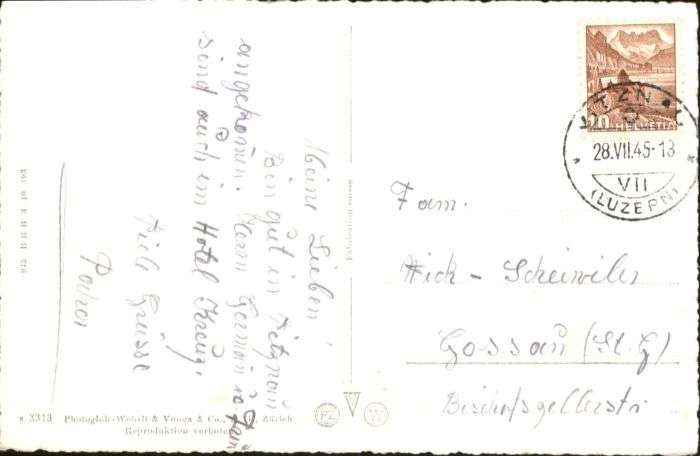 Meine Lieben!
Bin gut in Vitznau
angekomm. Herrn Germann u. Frau
sind auch im Hotel Kreuz.
Viele Grüsse
VITZNAU
28.VII.45-13
VII
(LUZERN)
20 HELVETIA
Fam.
Hick - Scheiwiler
Gossau (St. G)
Bischofszellerstr
3313 Photoglob-Wehrli & Vouga & Co., Zürich
Reproduktion verboten